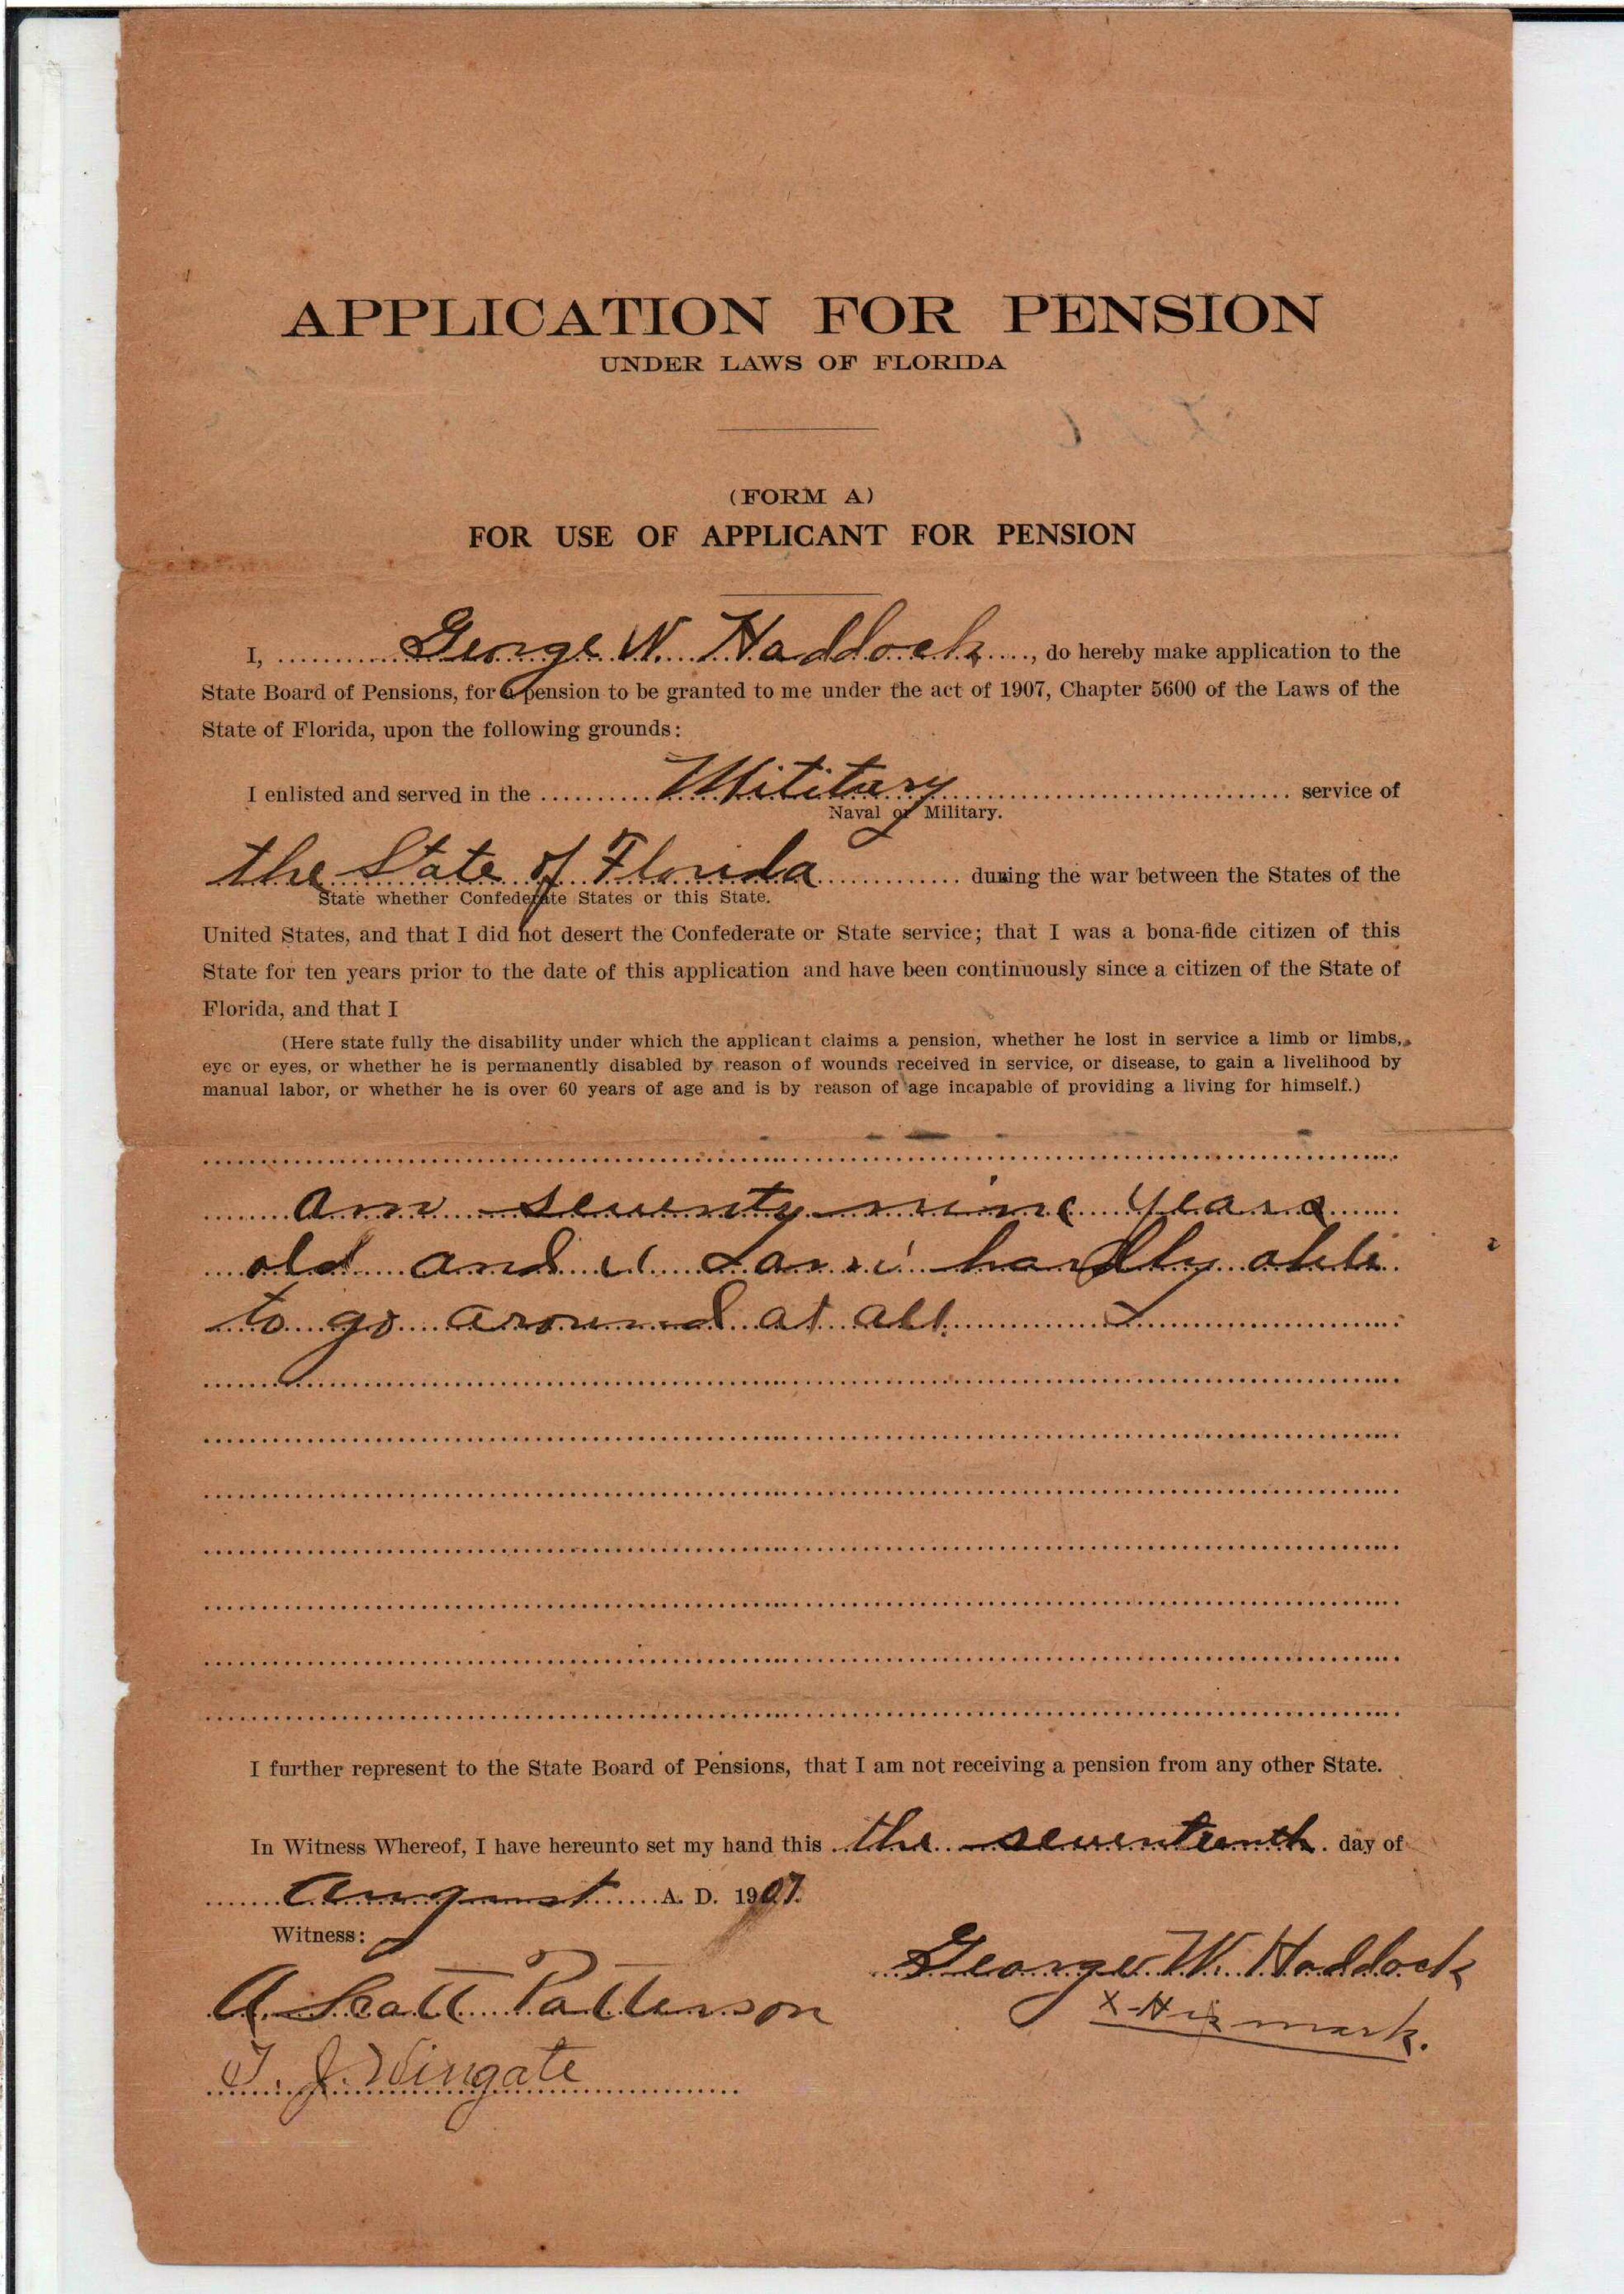 APPLICATION FOR PENSION
UNDER LAWS OF FLORIDA
(FORM A)
FOR USE OF APPLICANT FOR PENSION
I, George W. Haddock, do hereby make application to the
State Board of Pensions, for a pension to be granted to me under the act of 1907, Chapter 5600 of the Laws of the
State of Florida, upon the following grounds:
I enlisted and served in the Military service of
Naval or Military.
the State of Florida during the war between the States of the
State whether Confederate States or this State.
United States, and that I did not desert the Confederate or State service; that I was a bona-fide citizen of this
State for ten years prior to the date of this application and have been continuously since a citizen of the State of
Florida, and that I
(Here state fully the disability under which the applicant claims a pension, whether he lost in service a limb or limbs,
eye or eyes, or whether he is permanently disabled by reason of wounds received in service, or disease, to gain a livelihood by
manual labor, or whether he is over 60 years of age and is by reason of age incapable of providing a living for himself.)
am seventy nine years
old and hardly able
to go around at all.
I further represent to the State Board of Pensions, that I am not receiving a pension from any other State.
In Witness Whereof, I have hereunto set my hand this the seventeenth day of
August A. D. 1907.
Witness:
George W. Haddock
A. Scott Patterson
X His mark.
T. J. Wingate